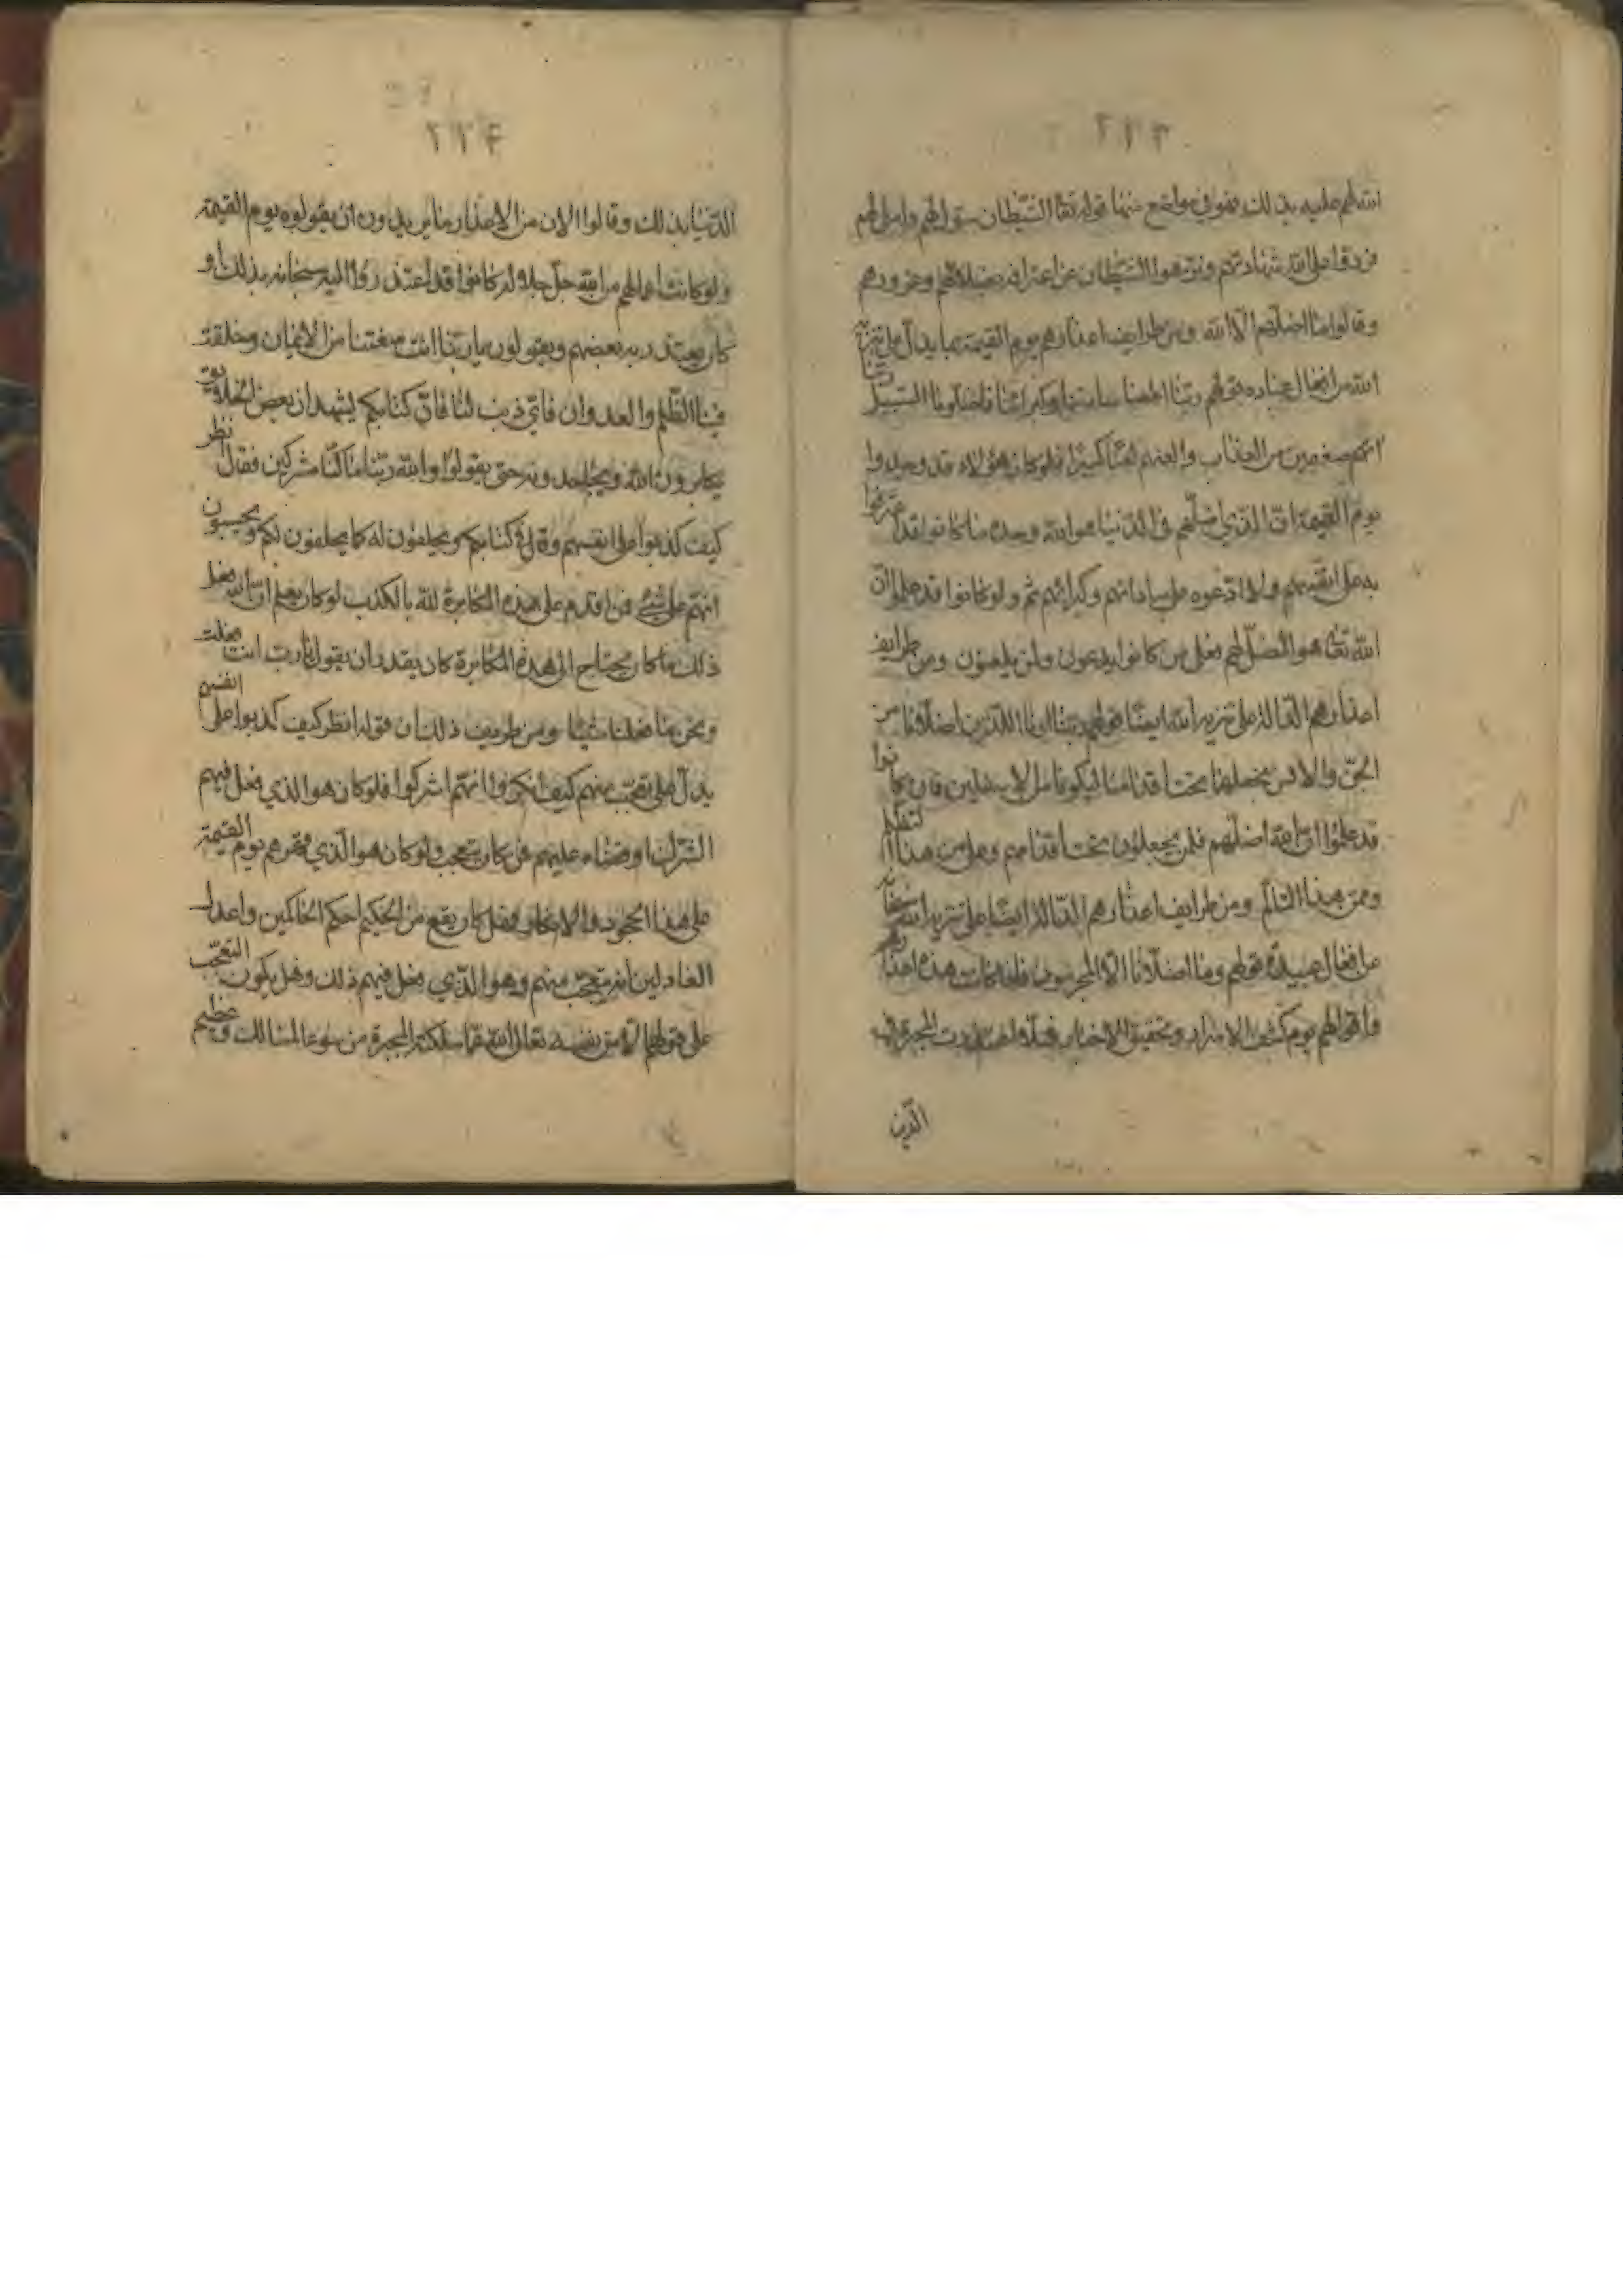 ٢٢٣
الله لهم عليه بذلك فهو في مواضع منها قوله تعالى الشيطان سول لهم واملى لهم
فردوا على الله شهادتهم ونزهوا الشيطان عن اعترافه بضلالهم وغرورهم
وقالوا ما اضلهم الا الله ومن طرايف اعذارهم يوم القيمة مما يدل على تنزيه
الله من افعال عباده قولهم ربنا اطعنا سادتنا وكبرائنا فاضلونا السبيل ربنا
اتهم ضعفين من العذاب والعنهم لعنا كبيرا فلو كان هؤلاء قد وجدوا
يوم القيمة ان الذي اضلهم في الدنيا هو الله وحده ما كانوا قد اعترفوا
به على انفسهم ولا ادعوه على ساداتهم وكبرائهم ثم ولو كانوا قد علموا ان
الله تعالى هو المضل لهم فعلى من كانوا يدعون ولمن يلعنون ومن طرايف
اعذارهم الدالة على تنزيه الله ايضا قولهم ربنا ارنا اللذين اضلانا من
الجن والانس نجعلهما تحت اقدامنا ليكونا من الاسفلين فان كانوا
قد علموا ان الله اضلهم فلمن يجعلون تحت اقدامهم وعلى من هذا التظلم
وممن هذا التالم ومن طرايف اعذارهم الدالة ايضا على تنزيه الله سبحانه
من افعال عبيده قولهم وما اضلانا الا المجرمون فاذا كانت هذه اعذارهم
واقوالهم يوم كشف الاسرار وتحقيق الاخبار فهلا اعتذرت المجبرة في
الدنيا
٢٢۴
الدنيا بذلك وقالوا الان من الاعذار ما يريدون ان يقولوه يوم القيمة
ولو كانت اعمالهم من الله جل جلاله كانوا قد اعتذروا اليه سبحانه بذلك او
كان يعتذر به بعضهم ويقولون يا ربنا انت منعتنا من الايمان وخلقت
فينا الظلم والعدوان فاي ذنب لنا فان كتابكم يشهد ان بعض الخلايق
يكابرون الله ويجاحدونه حتى يقولوا والله ربنا ما كنا مشركين فقال انظر
كيف كذبوا على انفسهم وقال في كتابكم ويحلفون له كما يحلفون لكم ويحسبون
انهم على شيء فمن اقدم على هذه المكابرة لله بالكذب لو كان يعلم ان الله فعل
ذلك ما كان يحتاج الى هذه المكابرة كان يقدر ان يقول يا رب انت فعلت
ونحن ما فعلنا شيئا ومن طريف ذلك ان قوله انظر كيف كذبوا على انفسهم
يدل على تعجب منهم كيف انكروا انهم اشركوا فلو كان هو الذي فعل فيهم
الشرك او قضاه عليهم فمن كان يتعجب ولو كان هو الذي قهرهم يوم القيمة
على هذا الجحود والانكار فهل كان يقع من الحكيم احكم الحاكمين واعدل
العادلين انه يتعجب منهم وهو الذي فعل فيهم ذلك وهل يكون التعجب
على قولهم الا من نفسه تعالى الله عما سلكته المجبرة من سوء المسالك وعظيم